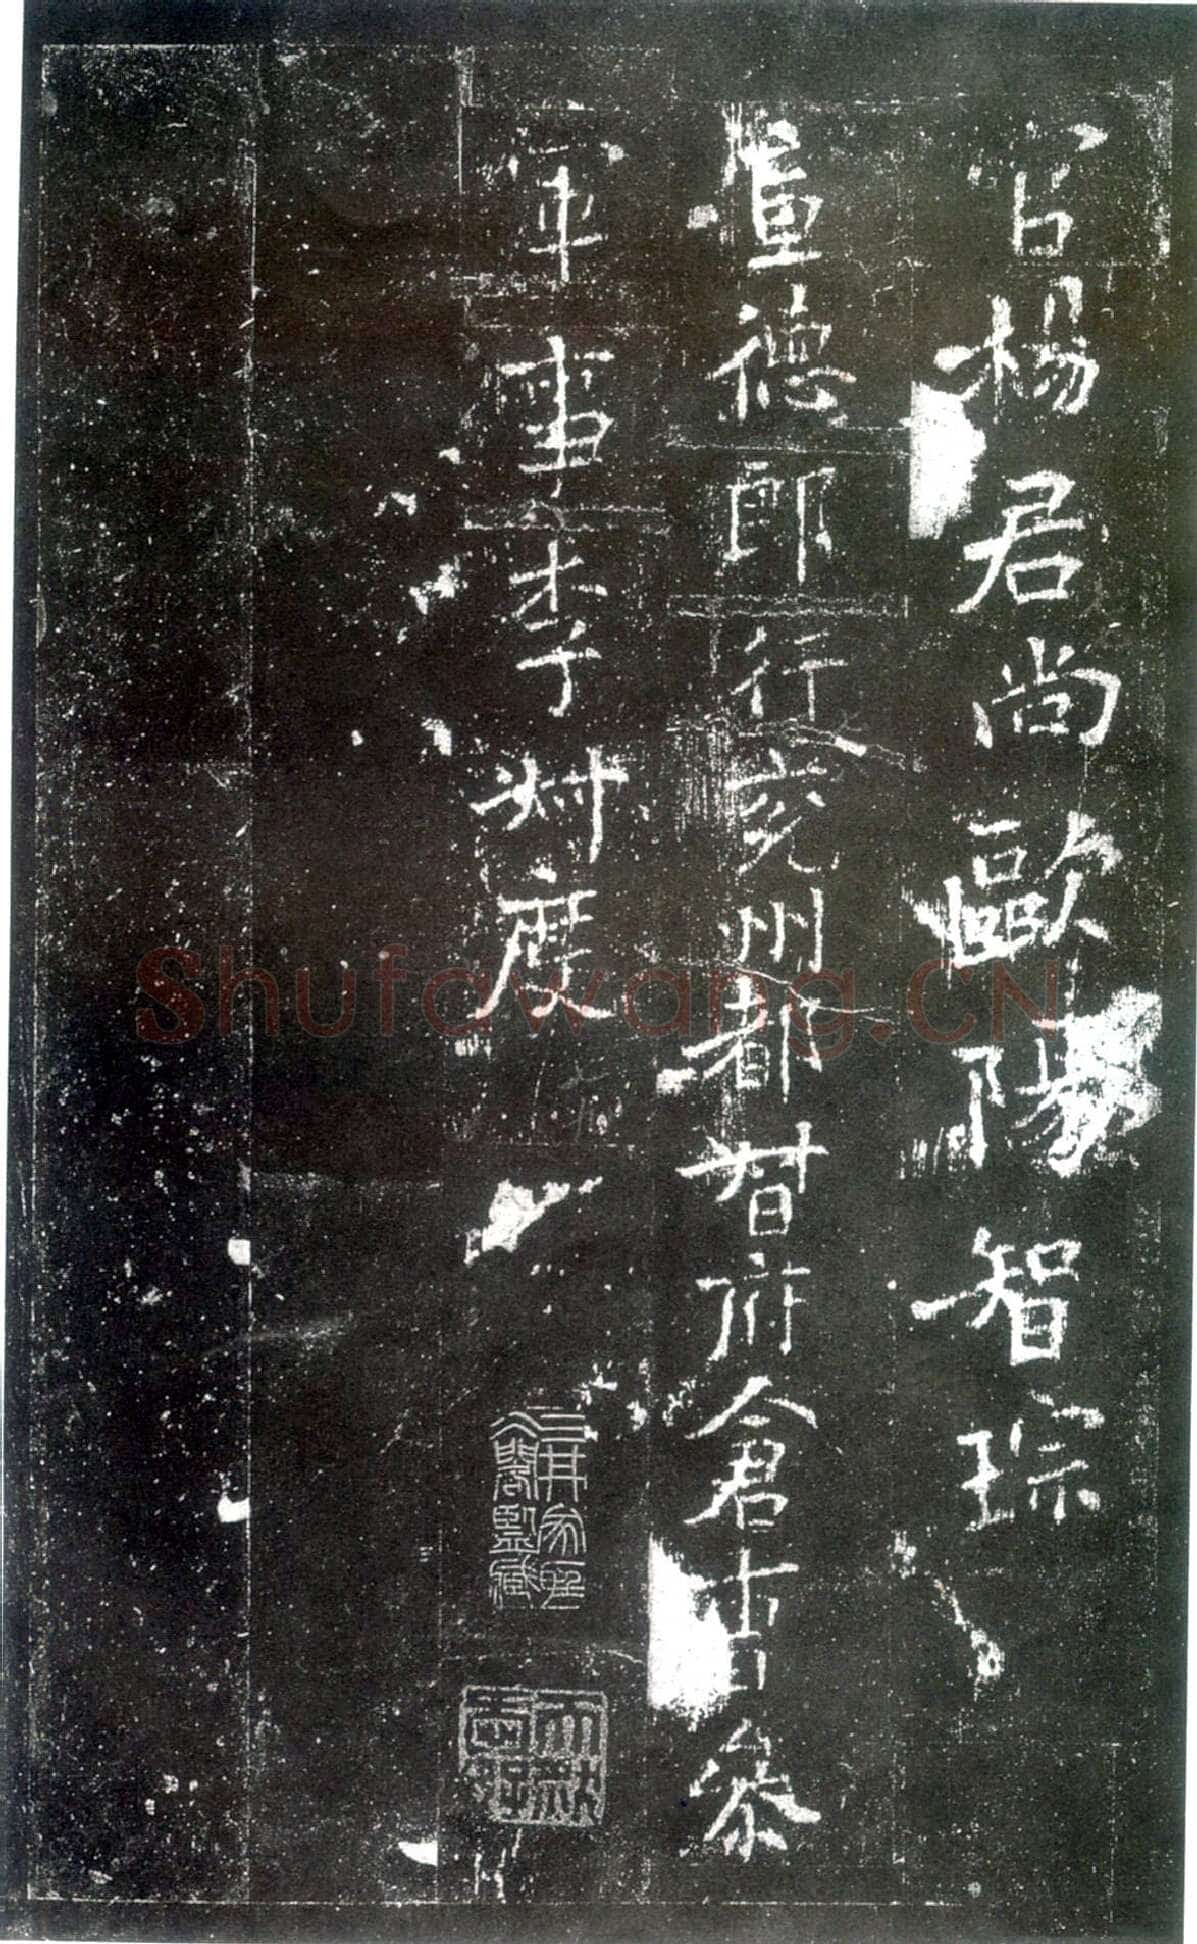 官楊君尚歐陽智琮
宣德郎行兖州都督府倉曹參
軍事李叔度
三井家聽
冰閣監藏
Shufawang.CN